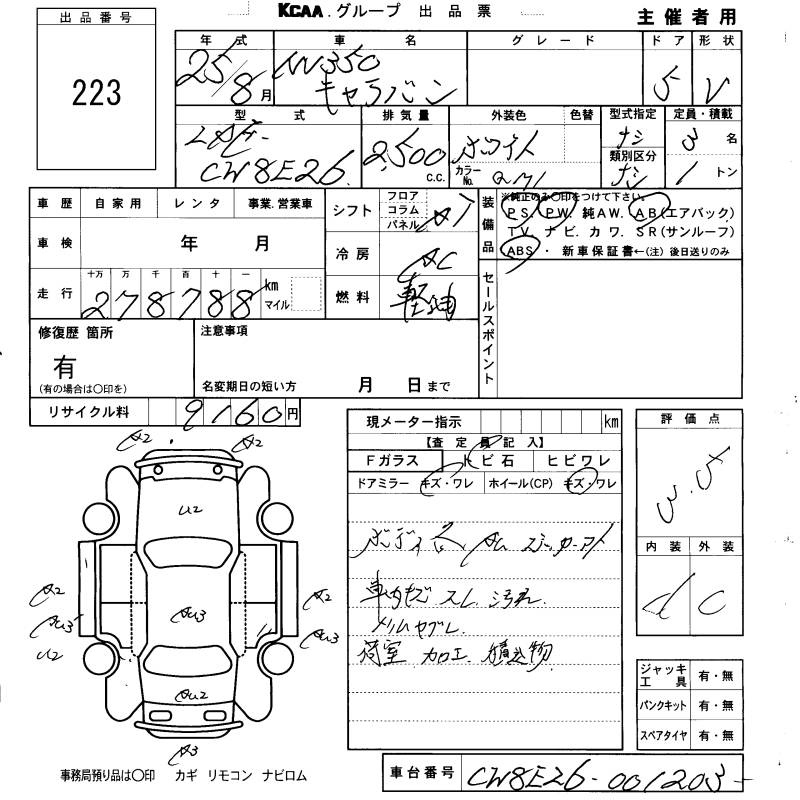 KCAA.グループ 出品票
主催者用
出品番号
223
年式 車名 グレード ドア 形状
25/8月 NV350 キャラバン 5 V
型式 排気量 外装色 色替 型式指定 定員・積載
CW8E26 2,500 c.c. ホワイト ナシ 3 名
カラーNo. QM1 類別区分 ナシ 1 トン
車歴 自家用 レンタ 事業.営業車
シフト フロア コラム パネル AT
装備品 ※純正のみ〇印をつけて下さい。
PS. PW. 純AW. AB(エアバック)
TV. ナビ. カワ. SR(サンルーフ)
ABS ・ 新車保証書←(注) 後日送りのみ
車検 年 月
冷房 AC
セールスポイント
走行 十万 万 千 百 十 一
278788 km マイル
燃料 軽油
修復歴 箇所 注意事項
有
(有の場合は〇印を) 名変期日の短い方 月 日まで
リサイクル料 9160円
現メーター指示 km
評価点
【査定員記入】
Fガラス トビ石 ヒビワレ
ドアミラー キズ・ワレ ホイール(CP) キズ・ワレ
3.5
内装 外装
d C
A2 A2
U2
AU3
AU2
A2
AU3
U2
A2
AU3
A3
車内キズ スレ 汚れ
荷室 加工 積込物
ジャッキ工具 有・無
パンクキット 有・無
スペアタイヤ 有・無
事務局預り品は〇印 カギ リモコン ナビロム
車台番号 CW8E26-001203-